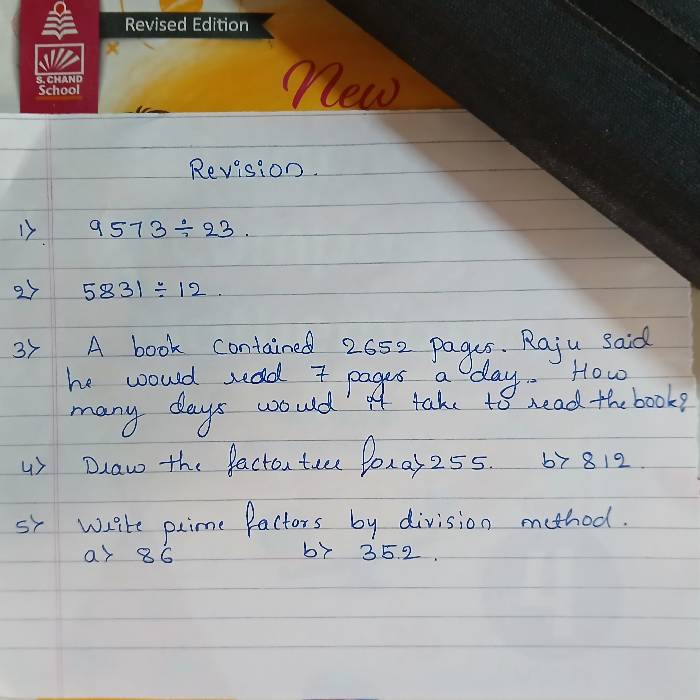 Revised Edition
S. CHAND
School
New
Revision.
1> 9573 ÷ 23.
2> 5831 ÷ 12.
3> A book contained 2652 pages. Raju said
he would read 7 pages a day. How
many days would it take to read the book?
4> Draw the factor tree for a> 255. b> 812.
5> Write prime factors by division method.
a> 86 b> 352.